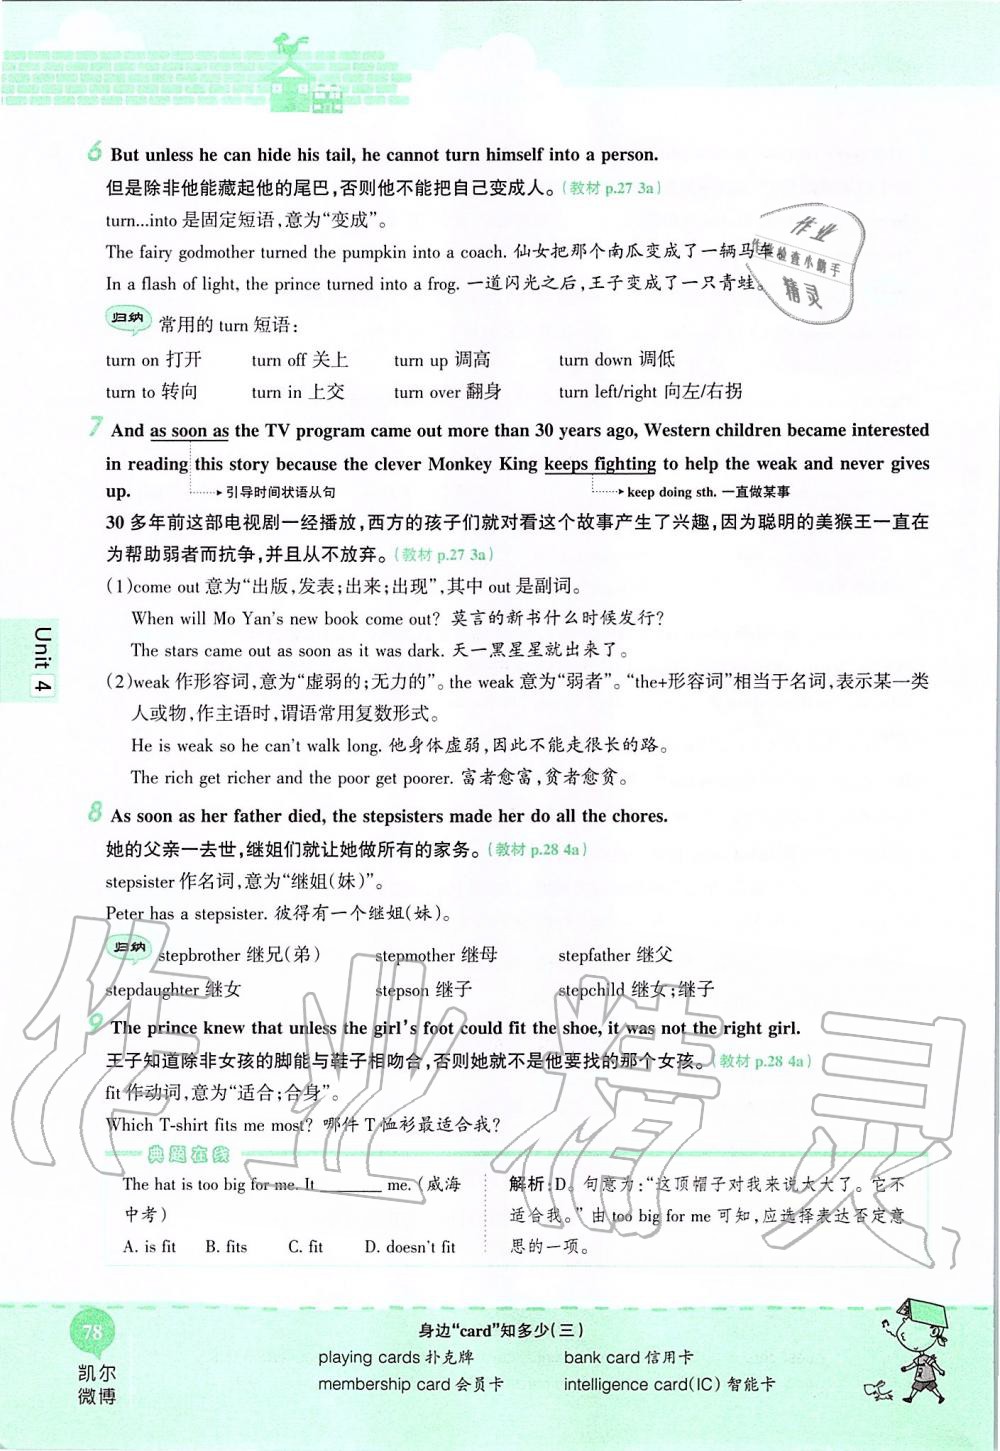 6 But unless he can hide his tail, he cannot turn himself into a person.
但是除非他能藏起他的尾巴,否则他不能把自己变成人。(教材 p.27 3a)
turn...into 是固定短语,意为“变成”。
The fairy godmother turned the pumpkin into a coach. 仙女把那个南瓜变成了一辆马车。
In a flash of light, the prince turned into a frog. 一道闪光之后,王子变成了一只青蛙。
作业
作业检查小助手
精灵
归纳 常用的 turn 短语:
turn on 打开 turn off 关上 turn up 调高 turn down 调低
turn to 转向 turn in 上交 turn over 翻身 turn left/right 向左/右拐
7 And as soon as the TV program came out more than 30 years ago, Western children became interested
in reading this story because the clever Monkey King keeps fighting to help the weak and never gives
up. 引导时间状语从句 keep doing sth. 一直做某事
30 多年前这部电视剧一经播放,西方的孩子们就对看这个故事产生了兴趣,因为聪明的美猴王一直在
为帮助弱者而抗争,并且从不放弃。(教材 p.27 3a)
(1)come out 意为“出版,发表;出来;出现”,其中 out 是副词。
When will Mo Yan's new book come out? 莫言的新书什么时候发行?
The stars came out as soon as it was dark. 天一黑星星就出来了。
(2)weak 作形容词,意为“虚弱的;无力的”。the weak 意为“弱者”。“the+形容词”相当于名词,表示某一类
人或物,作主语时,谓语常用复数形式。
He is weak so he can't walk long. 他身体虚弱,因此不能走很长的路。
The rich get richer and the poor get poorer. 富者愈富,贫者愈贫。
Unit 4
8 As soon as her father died, the stepsisters made her do all the chores.
她的父亲一去世,继姐们就让她做所有的家务。(教材 p.28 4a)
stepsister 作名词,意为“继姐(妹)”。
Peter has a stepsister. 彼得有一个继姐(妹)。
归纳 stepbrother 继兄(弟) stepmother 继母 stepfather 继父
stepdaughter 继女 stepson 继子 stepchild 继女;继子
9 The prince knew that unless the girl's foot could fit the shoe, it was not the right girl.
王子知道除非女孩的脚能与鞋子相吻合,否则她就不是他要找的那个女孩。(教材 p.28 4a)
fit 作动词,意为“适合;合身”。
Which T-shirt fits me most? 哪件 T 恤衫最适合我?
作业精灵
典题在线
The hat is too big for me. It ________ me. (威海
中考)
A. is fit B. fits C. fit D. doesn't fit
解析:D。句意为:“这顶帽子对我来说太大了。它不
适合我。”由 too big for me 可知,应选择表达否定意
思的一项。
78
凯尔
微博
身边“card”知多少(三)
playing cards 扑克牌 bank card 信用卡
membership card 会员卡 intelligence card(IC) 智能卡